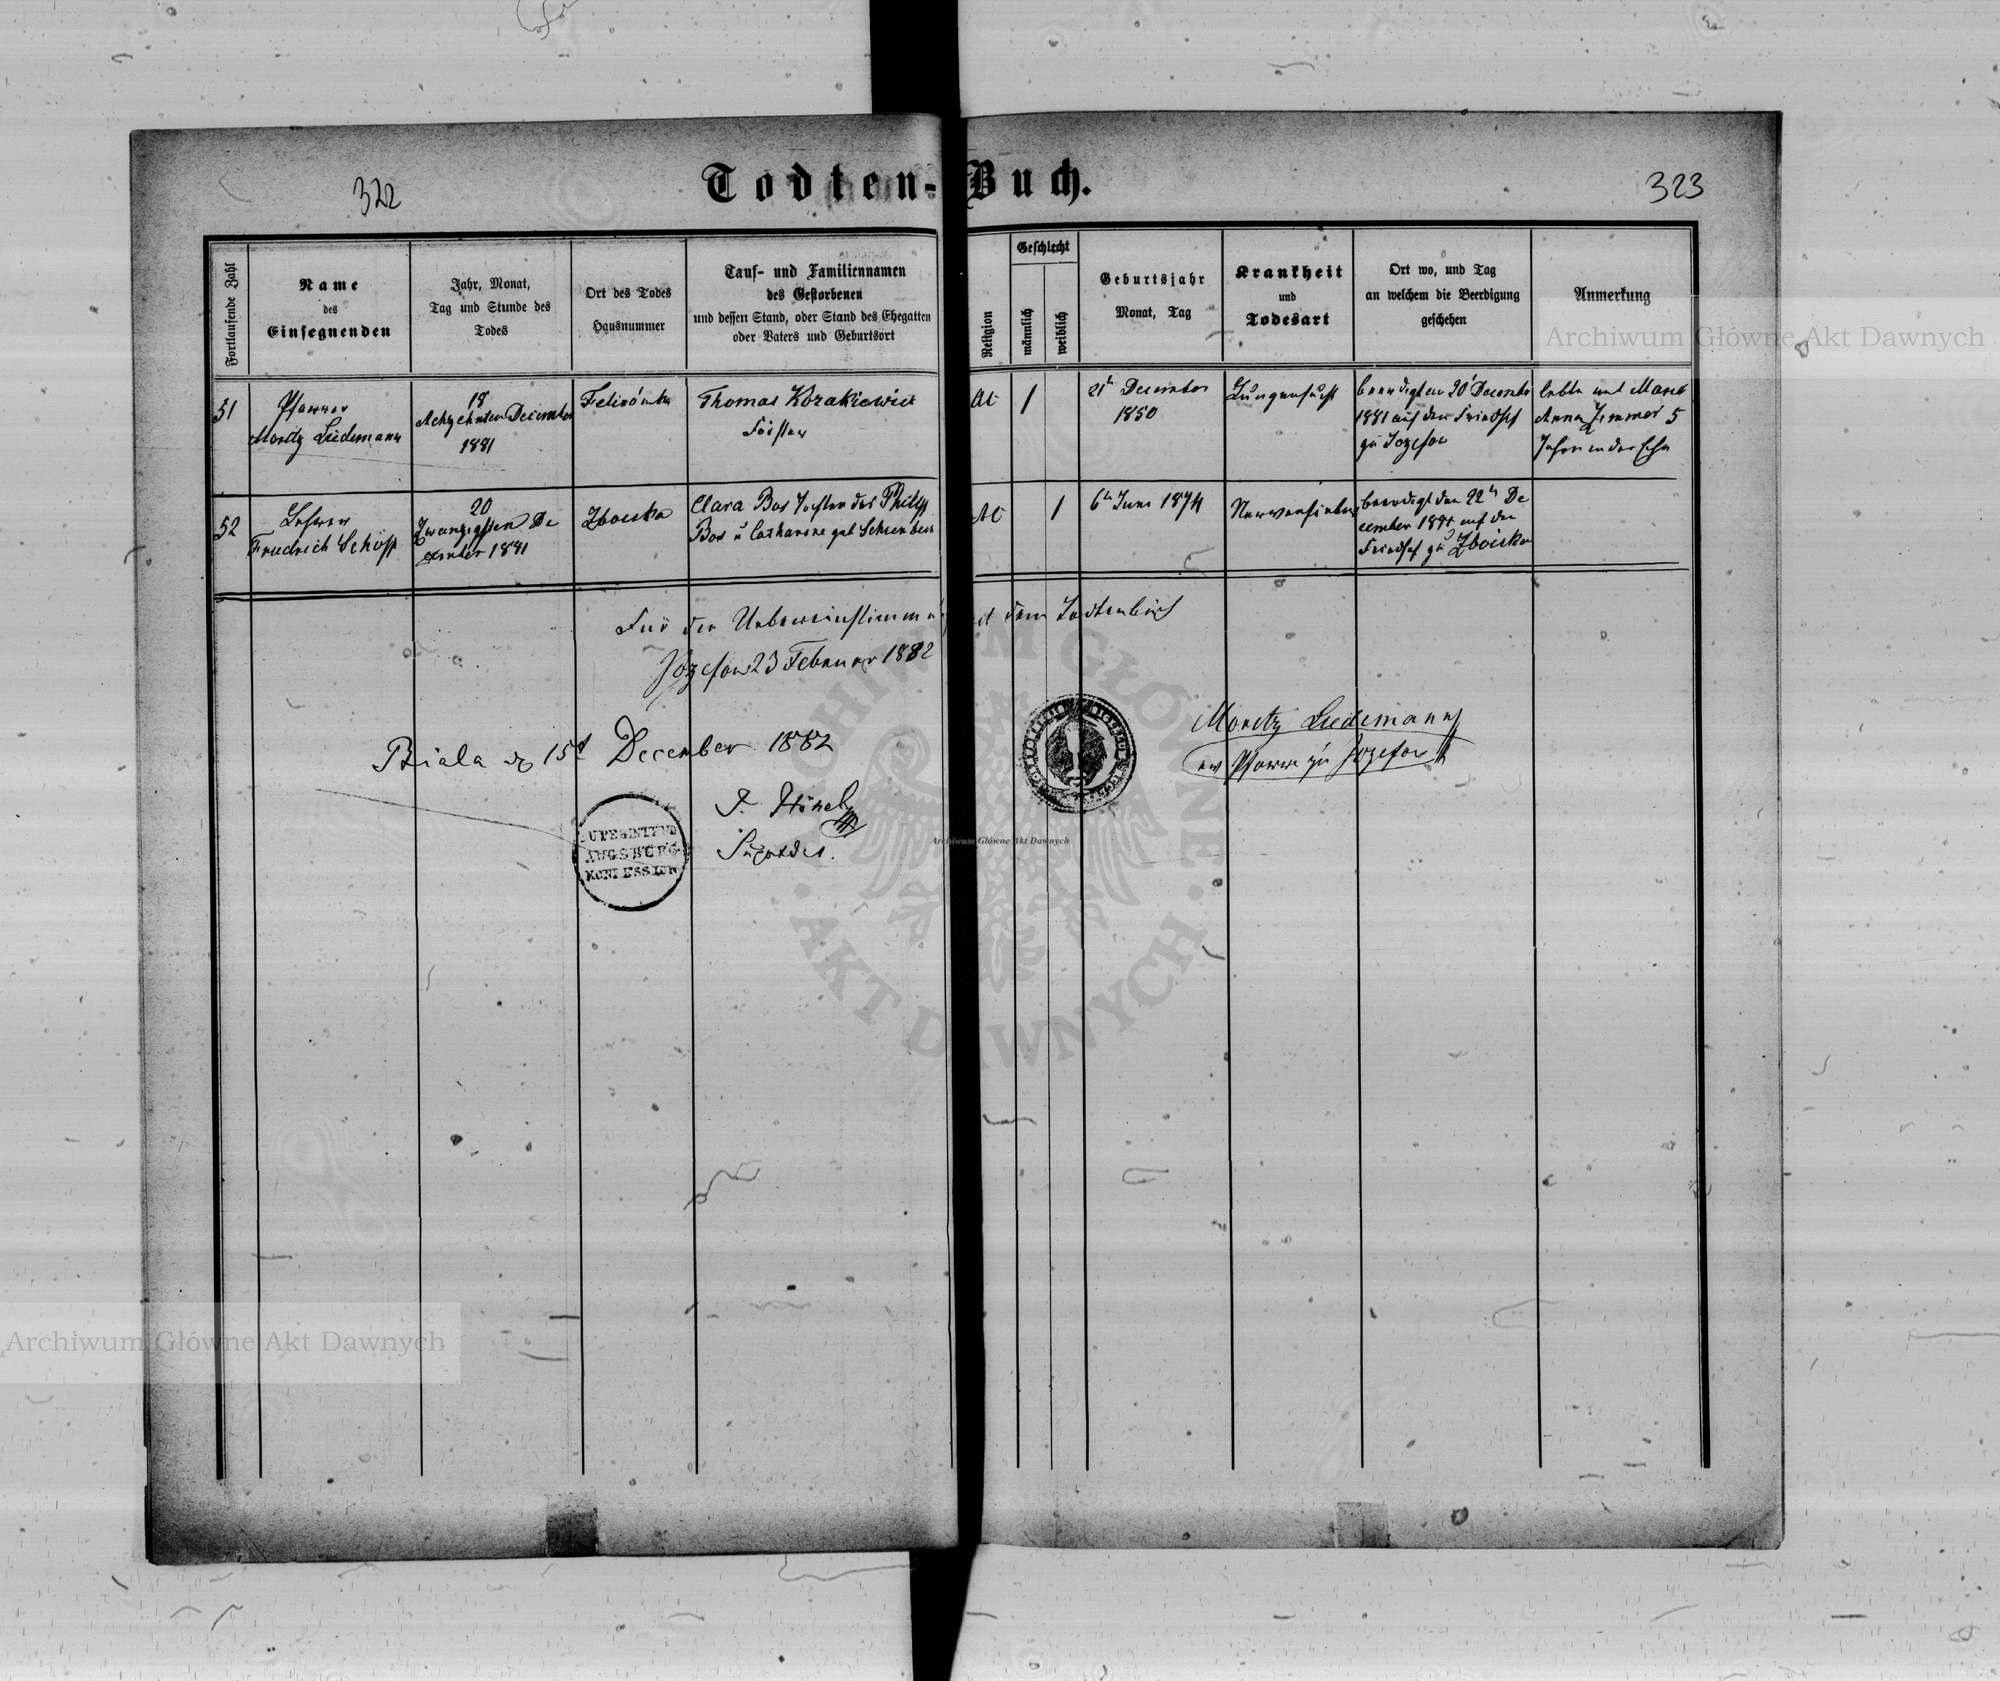 322
Todten-Buch.
323
Fortlaufende Zahl
Name
des
Einsegnenden
Jahr, Monat,
Tag und Stunde des
Todes
Ort des Todes
Hausnummer
Tauf- und Familiennamen
des Gestorbenen
und dessen Stand, oder Stand des Ehegatten
oder Vaters und Geburtsort
Religion
Geschlecht
männlich
weiblich
Geburtsjahr
Monat, Tag
Krankheit
und
Todesart
Ort wo, und Tag
an welchem die Beerdigung
geschehen
Anmerkung
51
Pfarrer
Moritz Liedemann
18
Achzehnten December
1881
Felizówka
Thomas Kozakiewicz
Förster
AC
1
21t December
1850
Lungensucht
beerdigt am 20t December
1881 auf dem Friedhof
zu Jozefow
lebte mit Maria
Anna Zimmer 5
Jahre in der Ehe
52
Lehrer
Friedrich Schöpp
20
Zwanzigsten De
cember 1881
Zboiska
Clara Bos Tochter des Philipp
Bos u Catharine geb
AC
1
6t Juni 1874
Nervenfieber
beerdigt den 22t De
cember 1881 auf den
Friedhof zu Zboiska
Für die Uebereinstimmung mit dem Todtenbuch
Jozefow 23 Februar 1882
Moritz Liedemann
ev Pfarrer zu Jozefow
Biala 15t December 1882
Hönel
SUPERINTEND
AUGSBURG
KONFESSION
Archiwum Główne Akt Dawnych
Archiwum Główne Akt Dawnych
ARCHIWUM GŁÓWNE
· AKT DAWNYCH ·
Archiwum Główne Akt Dawnych